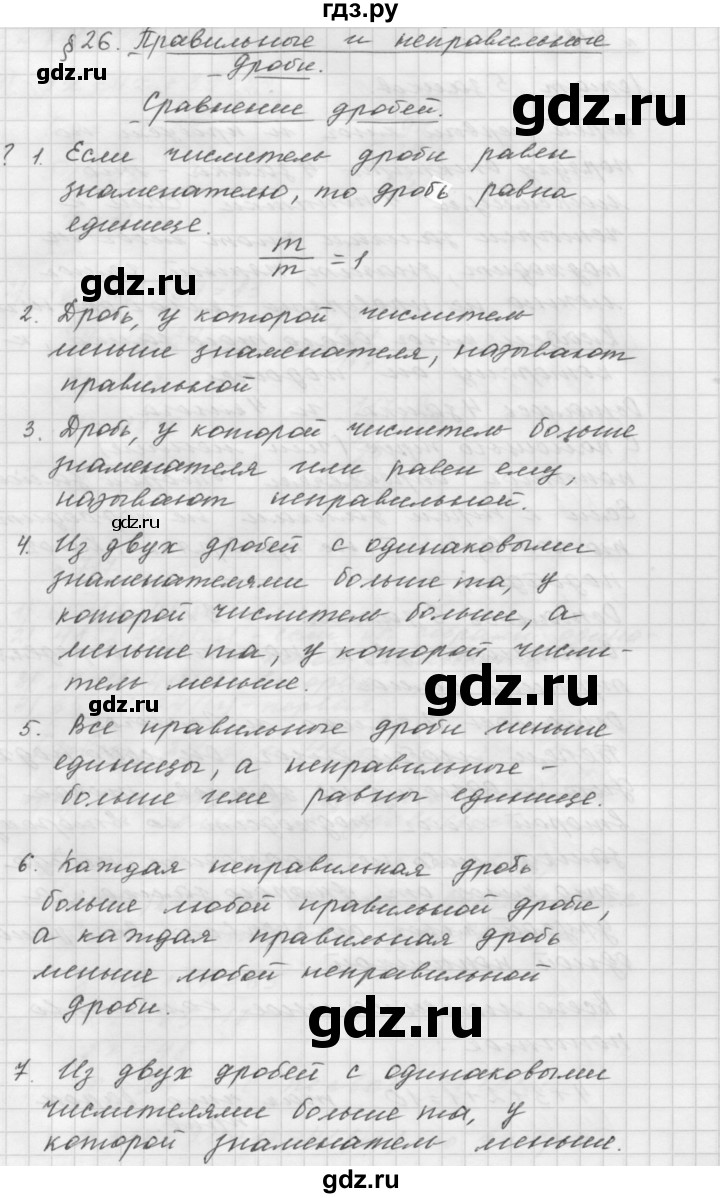 гдз.ру
§26. Правильные и неправильные
дроби.
Сравнение дробей.
? 1. Если числитель дроби равен
знаменателю, то дробь равна
единице.
m/m = 1
gdz.ru
gdz.ru
2. Дробь, у которой числитель
меньше знаменателя, называют
правильной
gdz.ru
3. Дробь, у которой числитель больше
знаменателя или равен ему,
называют неправильной.
gdz.ru
4. Из двух дробей с одинаковыми
знаменателями больше та, у
которой числитель больше, а
меньше та, у которой числи-
тель меньше.
gdz.ru
gdz.ru
5. Все правильные дроби меньше
единицы, а неправильные -
больше или равны единице.
6. Каждая неправильная дробь
больше любой правильной дроби,
а каждая правильная дробь
меньше любой неправильной
дроби.
gdz.ru
7. Из двух дробей с одинаковыми
числителями больше та, у
которой знаменатель меньше.
gdz.ru